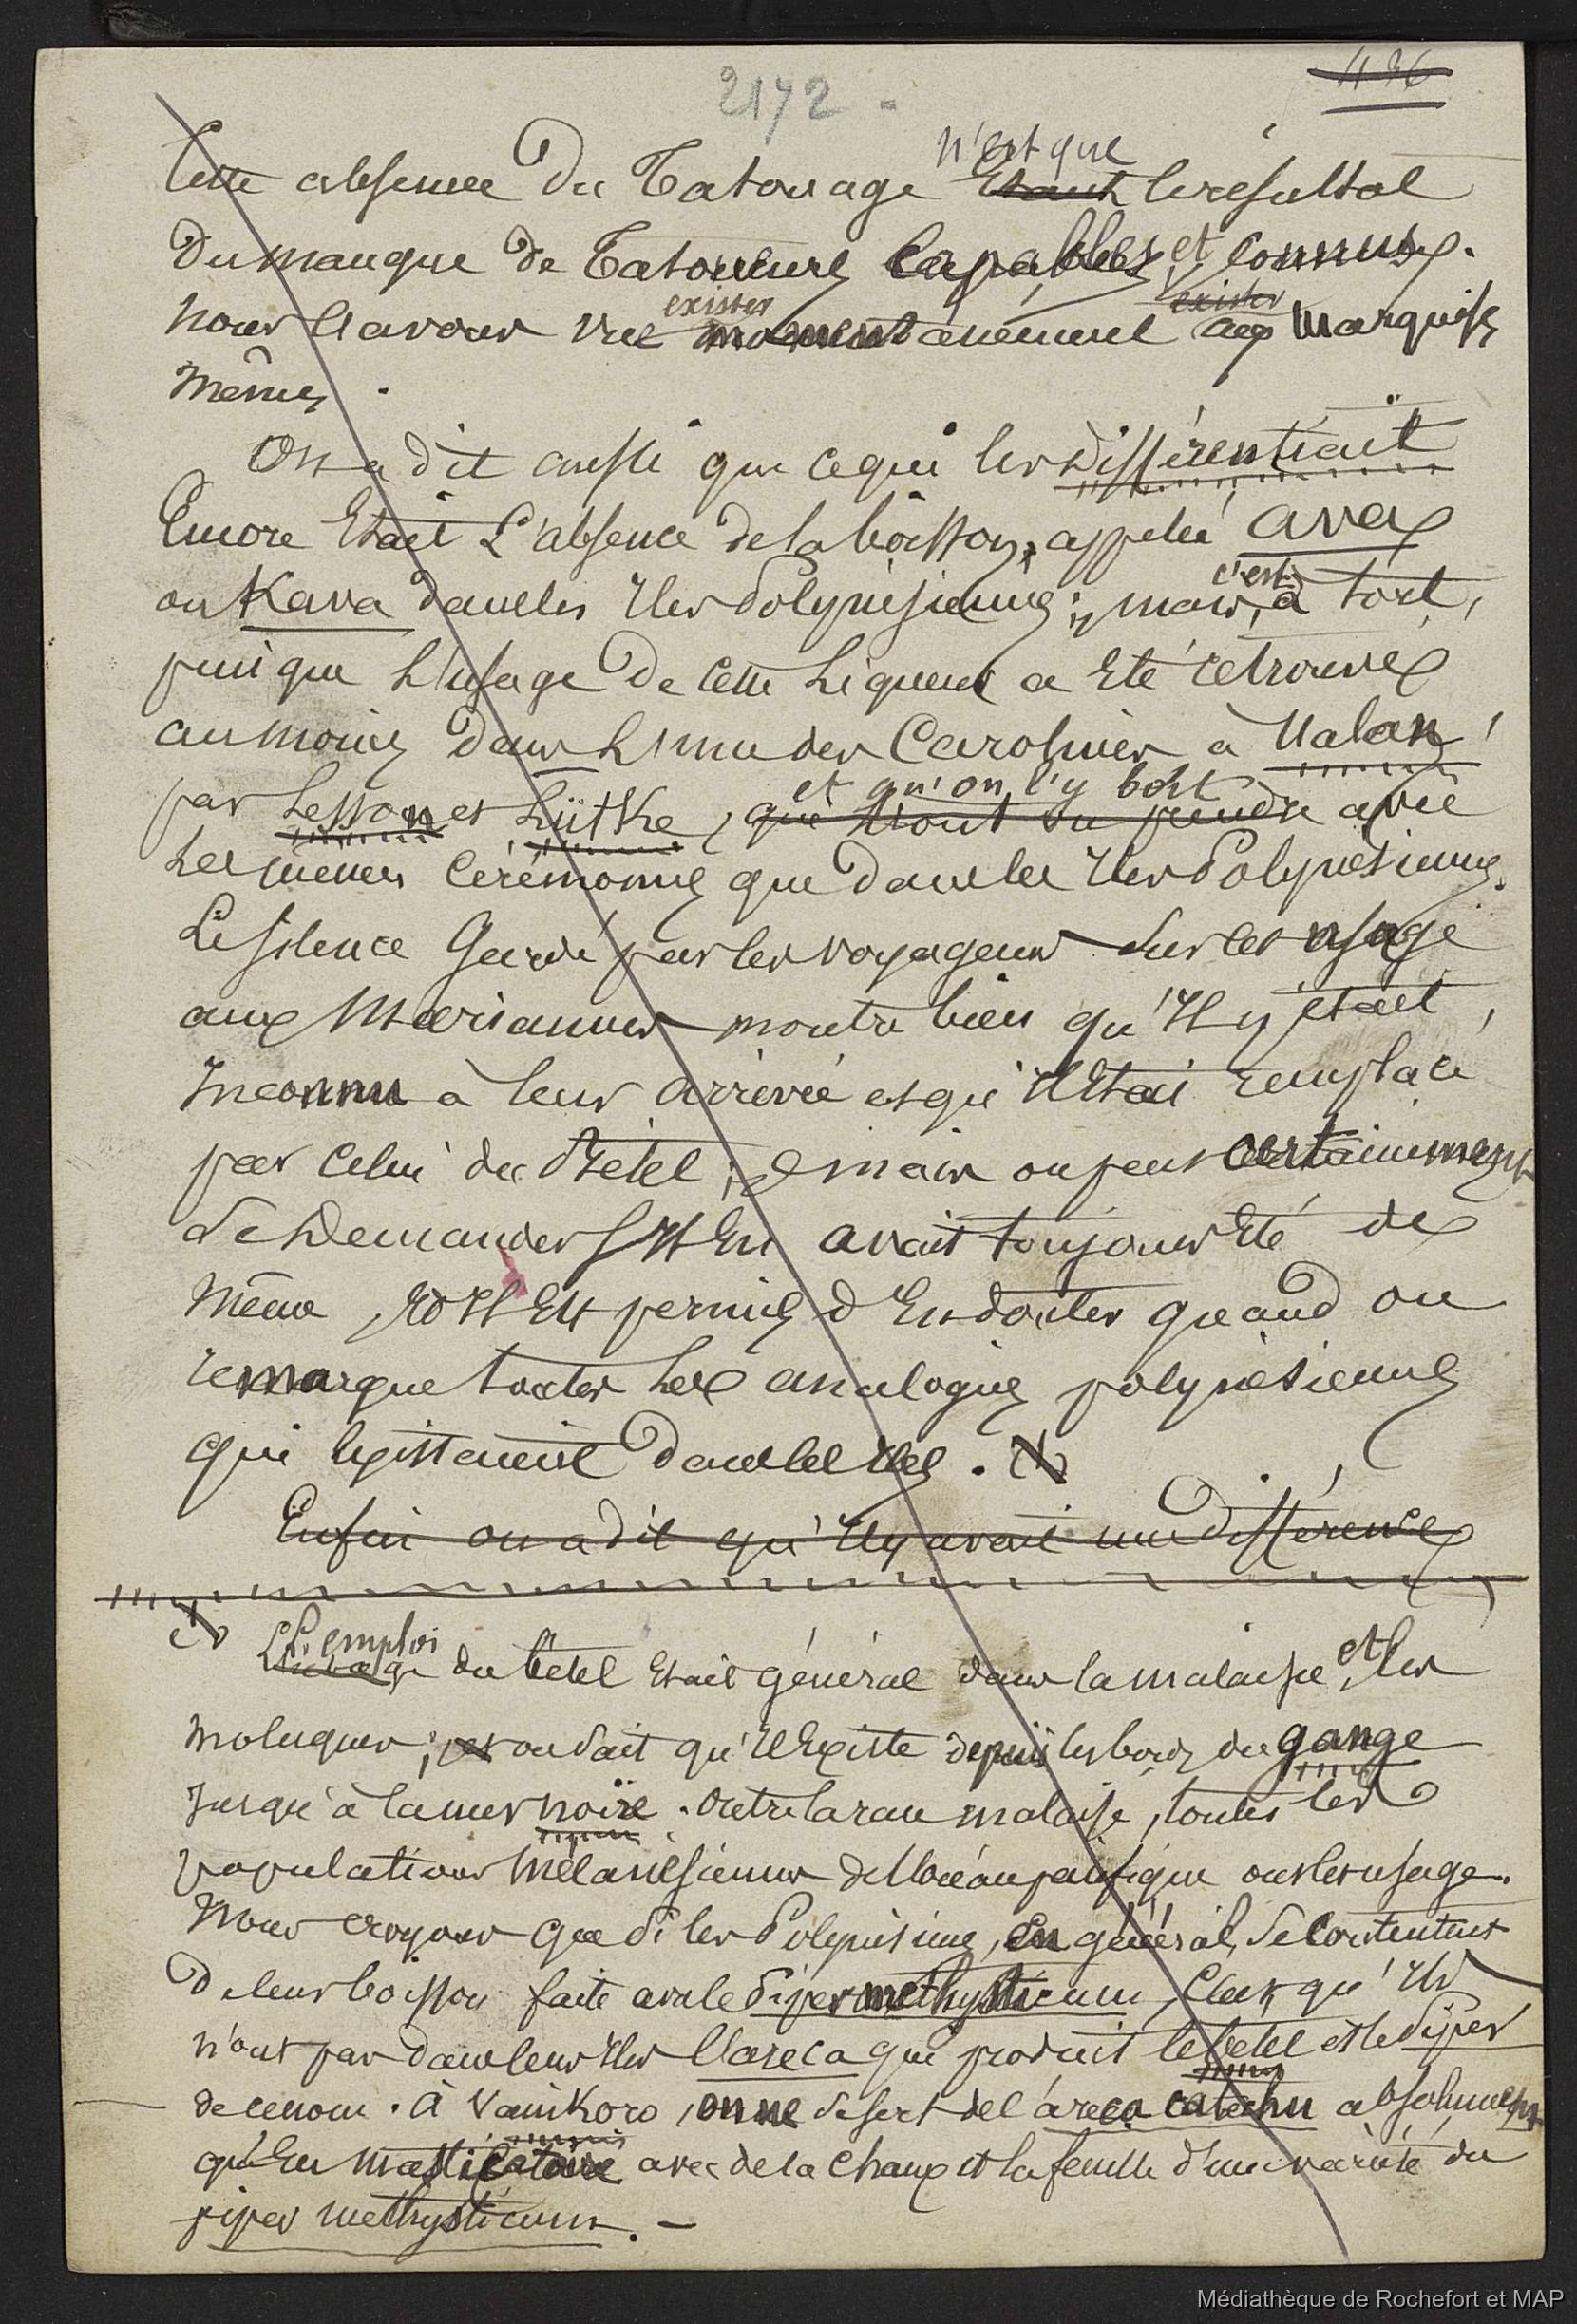 2172 -
436
n'est que
Cette absence du Tatouage Etant le resultat
du manque de Tatoueurs capables et connus.
exister
exister
nous l'avons vue momentanément aux marquises
mêmes.
On a dit aussi que ce qui les différentiait
Encore Etait L'absence de la boisson, appelée ava
c'est
ou Kava dans les Iles Polynésiennes; mais, à tort,
puisque L'usage de cette Liqueur a Eté retrouvé
au moins dans L'une des Carolines à Ualan,
et qu'on l'y boit
par Lesson et Lütke, qui l'ont vu prendre avec
Les mêmes cérémonies que dans les Iles Polynésiennes.
Le silence Gardé par les voyageurs sur cet usage
aux Mariannes montre bien qu'Il y était,
Inconnu à leur arrivée et qu'Il Etait remplacé
par celui du Bétel; mais on peut certainement
se Demander s'Il En avait toujours Eté de
même, et Il Est permis d'En douter quand on
remarque toutes Les analogies polynésiennes
qui Existaient dans les Iles.
Enfin on a dit qu'Il y avait une différence
L'emploi
L'usage du bétel Etait général dans la malaisie et les
moluques; on sait qu'Il Existe depuis les bords du gange
Jusqu'à la mer noire. Outre la race malaise, toutes les
populations Mélanésiennes de l'océan pacifique ont les usage.
Nous croyons que si les Polynésiens, en général, se contentent
de leur boisson faite avec le Piper methysticum, c'est qu'Ils
n'ont pas dans leurs Iles l'areca qui produit le bétel et le Piper
de ce nom. À Vanikoro, on ne se sert de l'areca catechu absolument
qu'En masticatoire avec de la chaux et la feuille d'une variété du
piper methysticum. -
Médiathèque de Rochefort et MAP